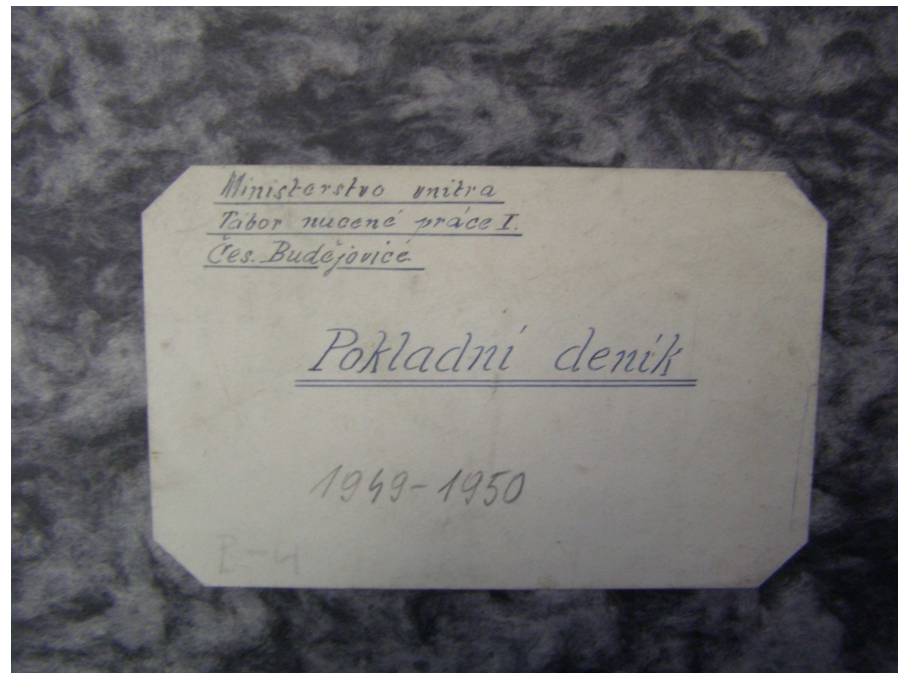 Ministerstvo vnitra
Tábor nucené práce I.
Čes. Budějovice
Pokladní deník
1949-1950
B-4